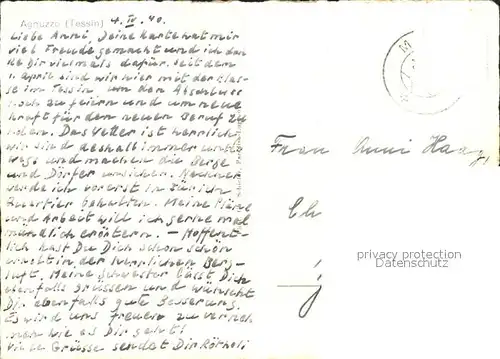 Agnuzzo (Tessin) 4. IV. 40.
Liebe Anni, Deine Karte hat mir
viel Freude gemacht und ich dan
ke Dir vielmals dafür. Seit dem
1. April sind wir hier mit der Klas-
se im Tessin um den Abschluss
noch zu feiern und um neue
Kraft für den neuen Beruf zu
holen. Das Wetter ist herrlich
wir sind deshalb immer unter
wegs und machen die Berge
und Dörfer unsicher. Nachher
werde ich vorerst in Zürich
Quartier behalten. Meine Pläne
und Arbeit will ich gerne mal
mündlich erörtern. – Hoffent-
lich hast Du Dich schon schön
erholt in der herrlichen Berg-
luft. Meine Schwester lässt Dich
ebenfalls grüssen und wünscht
Dir ebenfalls gute Besserung.
Es wird uns freuen zu verneh
men wie es Dir geht!
viele Grüsse sendet Dir
Frau Anni Haag,
privacy protection
Datenschutz